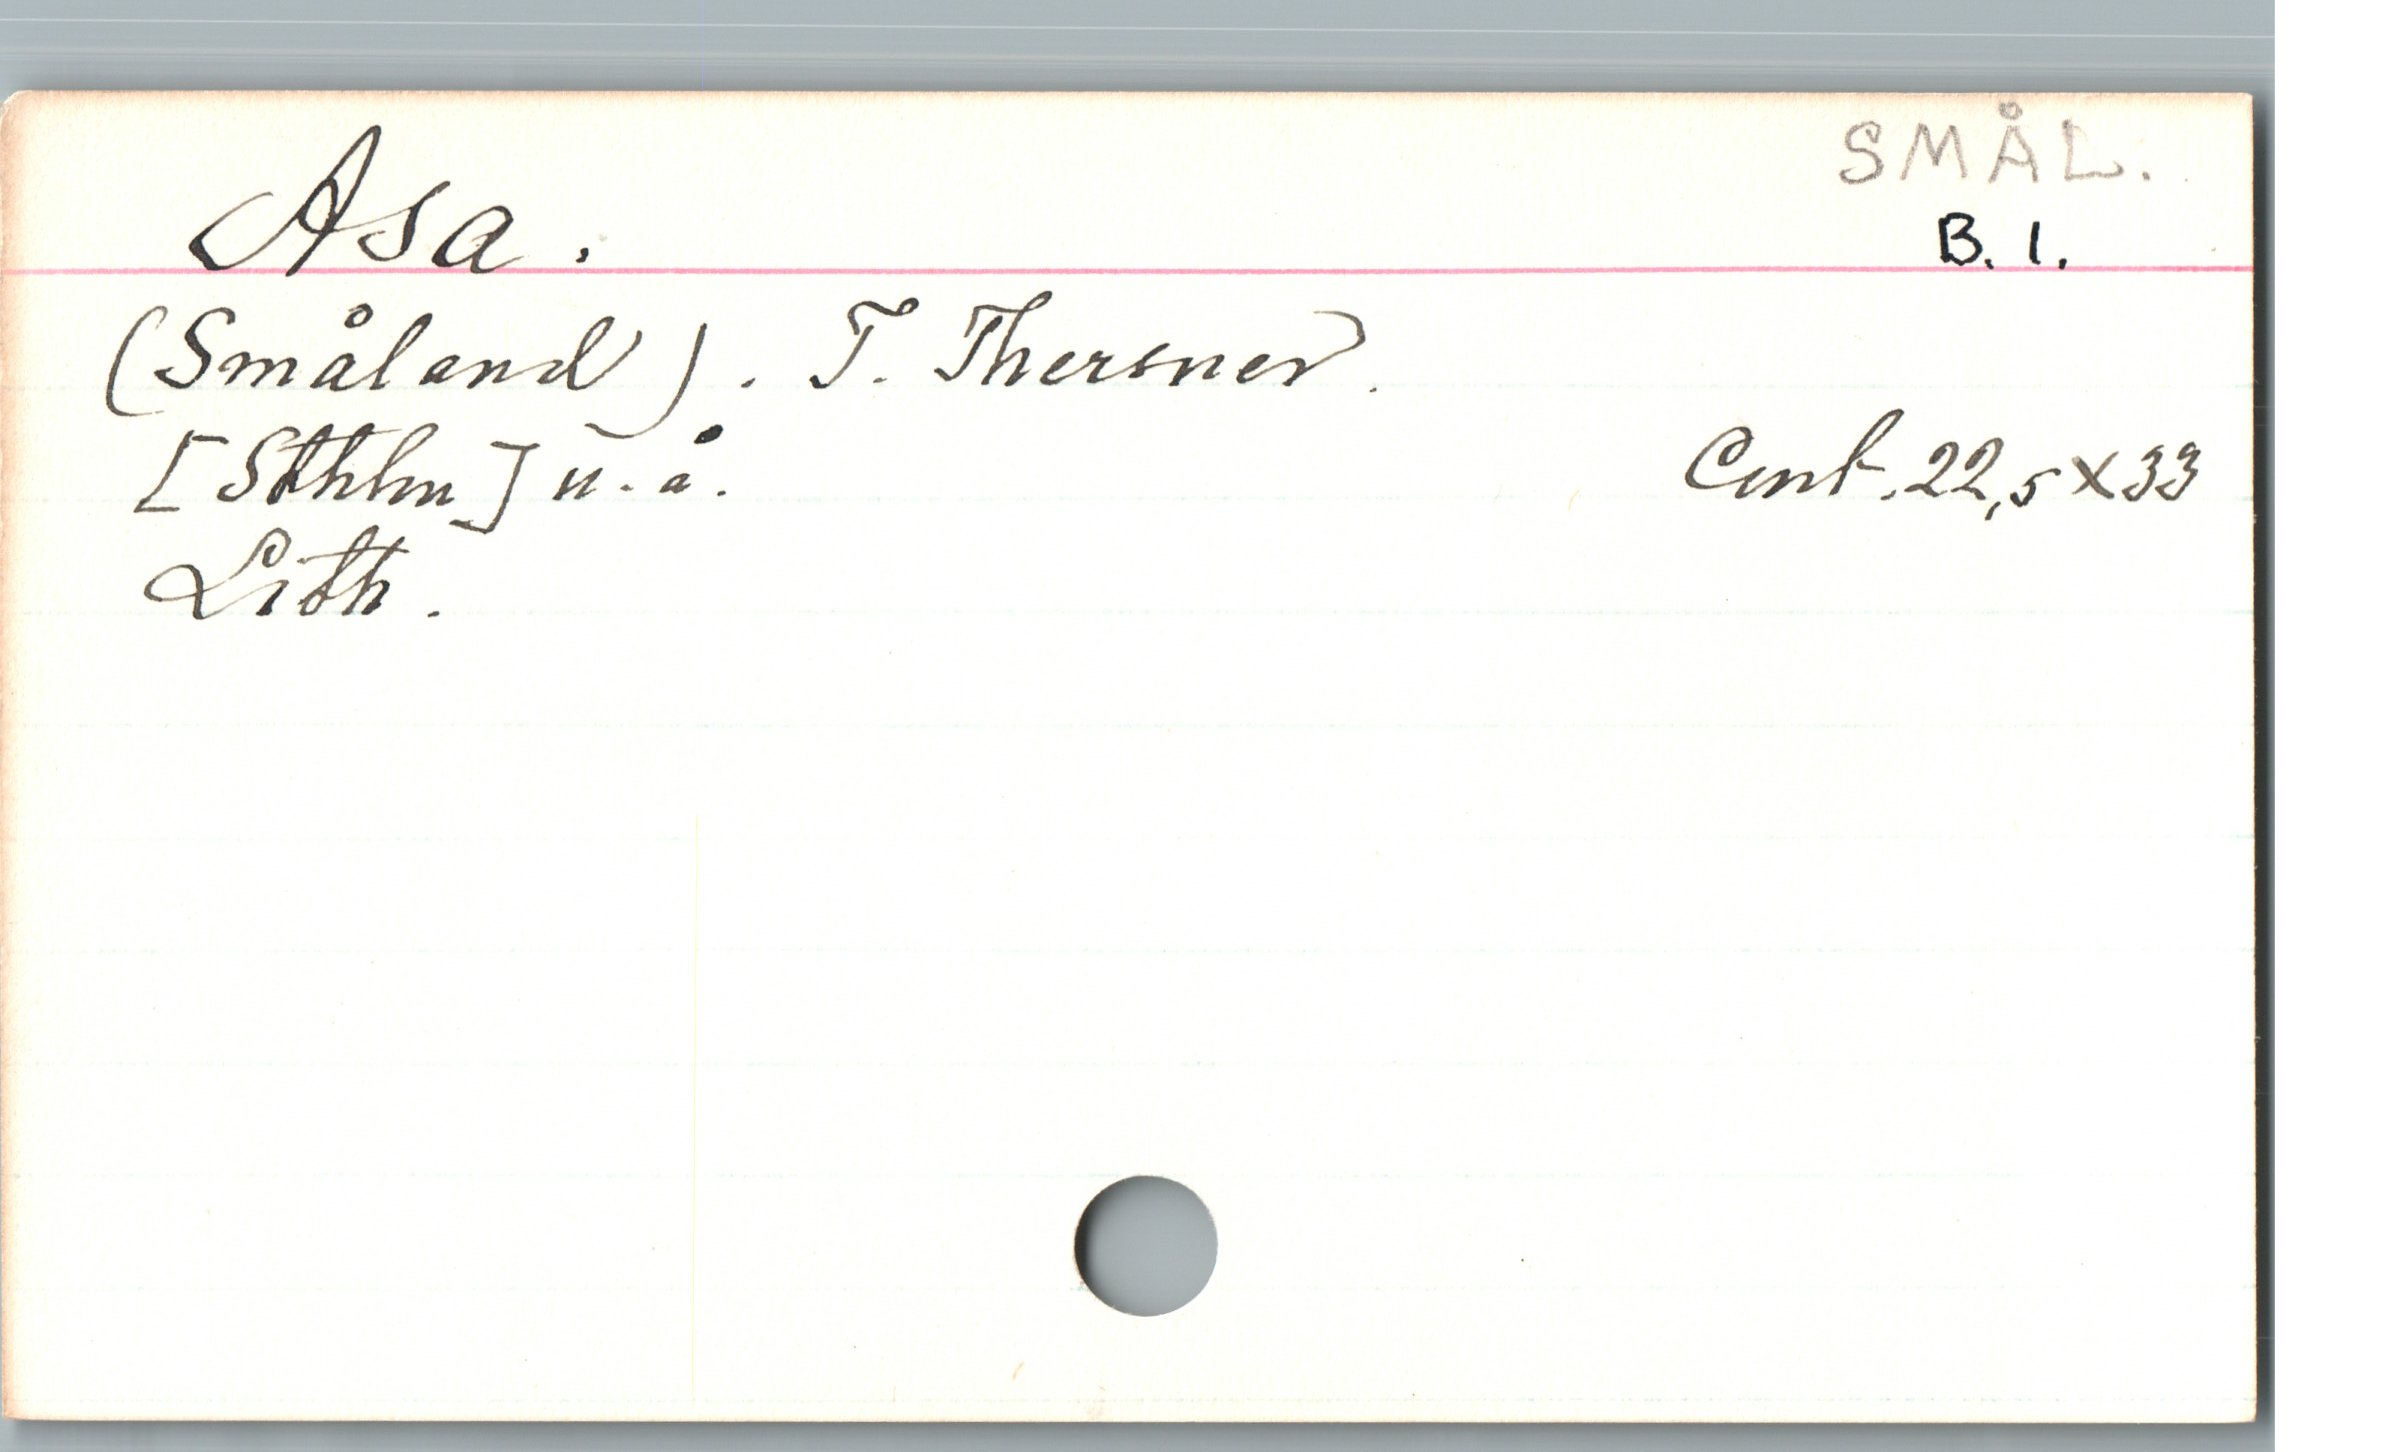 SMÅL.
Asa.
B. 1.
(Småland). T. Thersner.
[Sthlm] u. å.
Cent. 22,5 X 33
Lith.